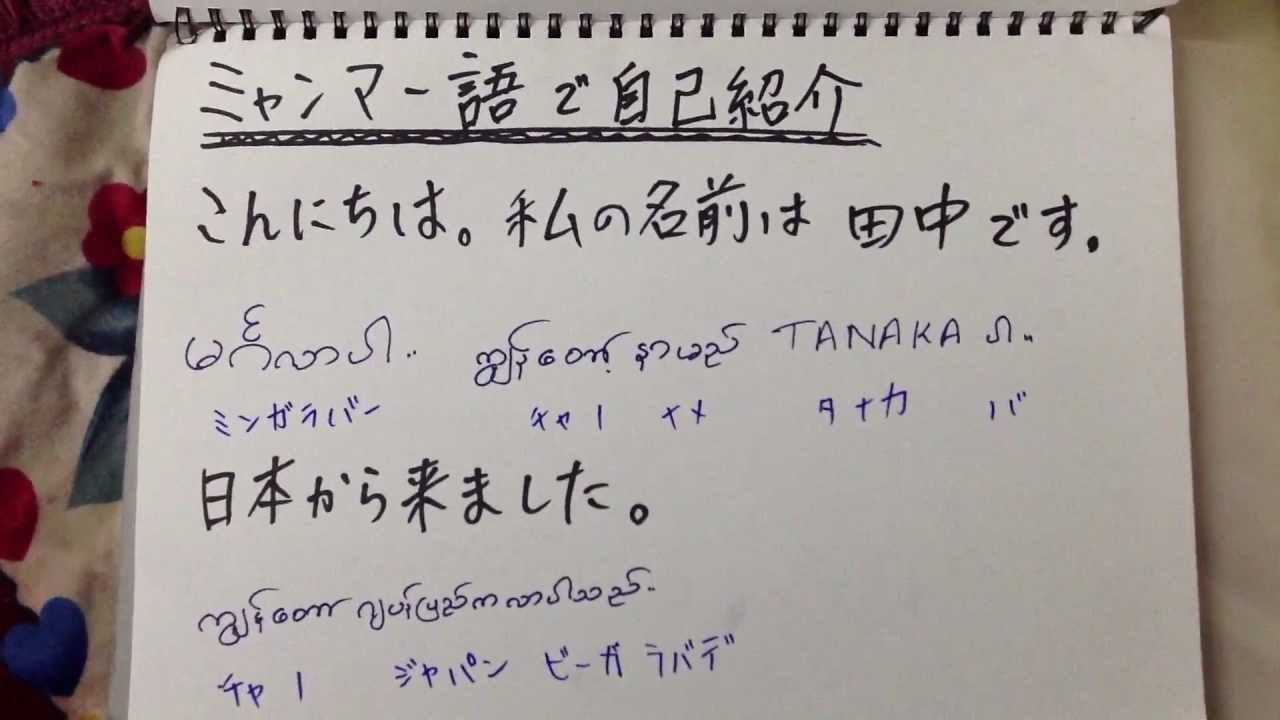 ミャンマー語で自己紹介
こんにちは。私の名前は田中です。
မင်္ဂလာပါ။ ကျွန်တော့် နာမည် TANAKA ပါ။
ミンガラバー チャノ ナメ タナカ バ
日本から来ました。
ကျွန်တော် ဂျပန်ပြည်က လာပါသည်။
チャノ ジャパン ビーガ ラバデ